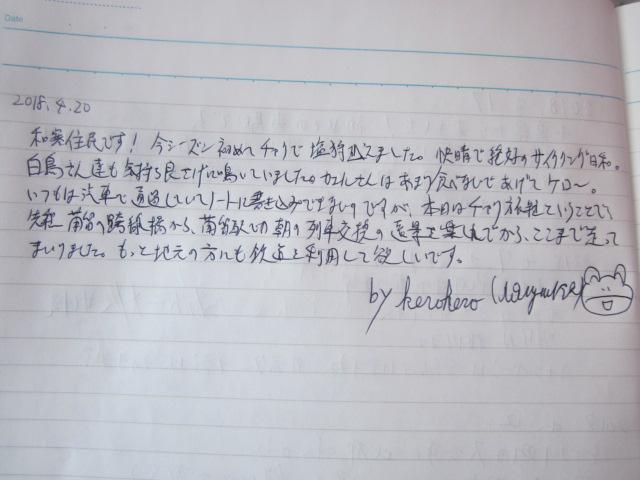 Date
2018.4.20
和寒住民です! 今シーズン初めてチャリで塩狩越えました。快晴で絶好のサイクリング日和。
白鳥さん達も気持ち良さげに鳴いていました。カエルさんはあまり食べないであげてケロ〜。
いつもは汽車で通過していてノートに書き込みできないのですが、本日はチャリ旅ということで、
先程 蘭留の跨線橋から、蘭留駅での朝の列車交換の を でから、ここまで走って
まいりました。もっと地元の方にも鉄道を利用して欲しいです。
by kerokero